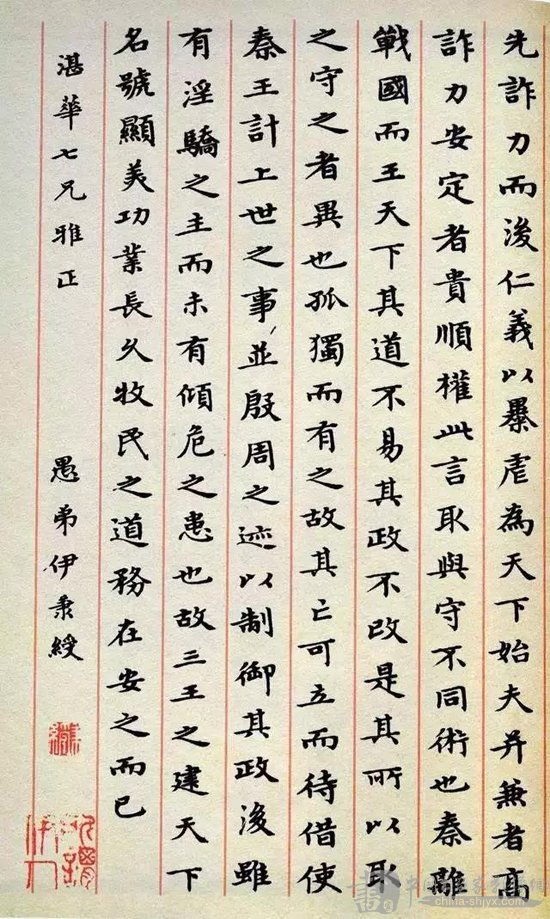 先詐力而後仁義以㬥虐為天下始夫并兼者高
詐力安定者貴順權此言取與守不同術也秦離
戰國而王天下其道不易其政不改是其所以取
之守之者異也孤獨而有之故其亡可立而待借使
秦王計上世之事並殷周之迹以制御其政後雖
有淫驕之主而未有傾危之患也故三王之建天下
名號顯美功業長久牧民之道務在安之而已
湛華七兄雅正
愚弟伊秉綬
china-shjyx.com